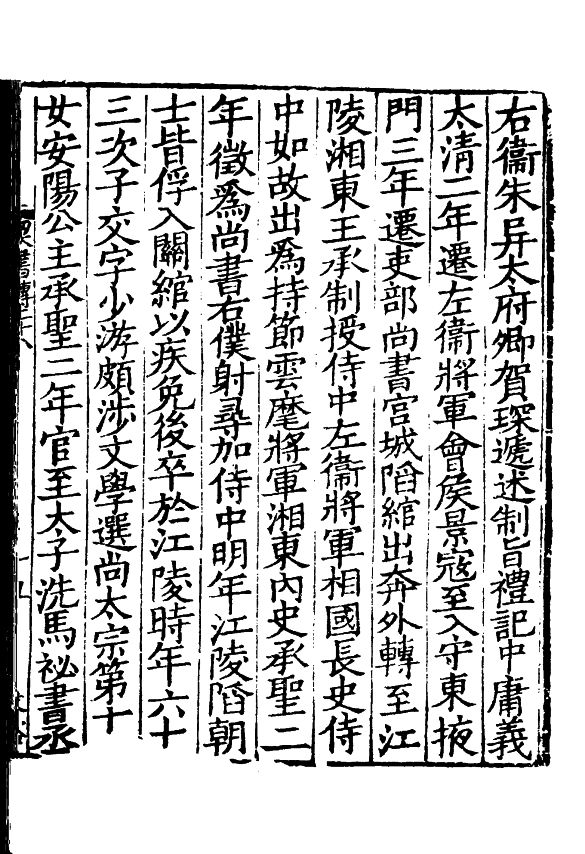 右衞朱异太府卿賀琛遞述制旨禮記中庸義
太淸二年遷左衞將軍會侯景寇至入守東掖
門三年遷吏部尚書宮城䧟綰出奔外轉至江
陵湘東王承制授侍中左衞將軍相國長史侍
中如故出爲持節雲麾將軍湘東內史承聖二
年徵爲尚書右僕射尋加侍中明年江陵䧟朝
士皆俘入關綰以疾免後卒於江陵時年六十
三次子交字少游頗涉文學選尚太宗第十
女安陽公主承聖二年官至太子洗馬祕書丞